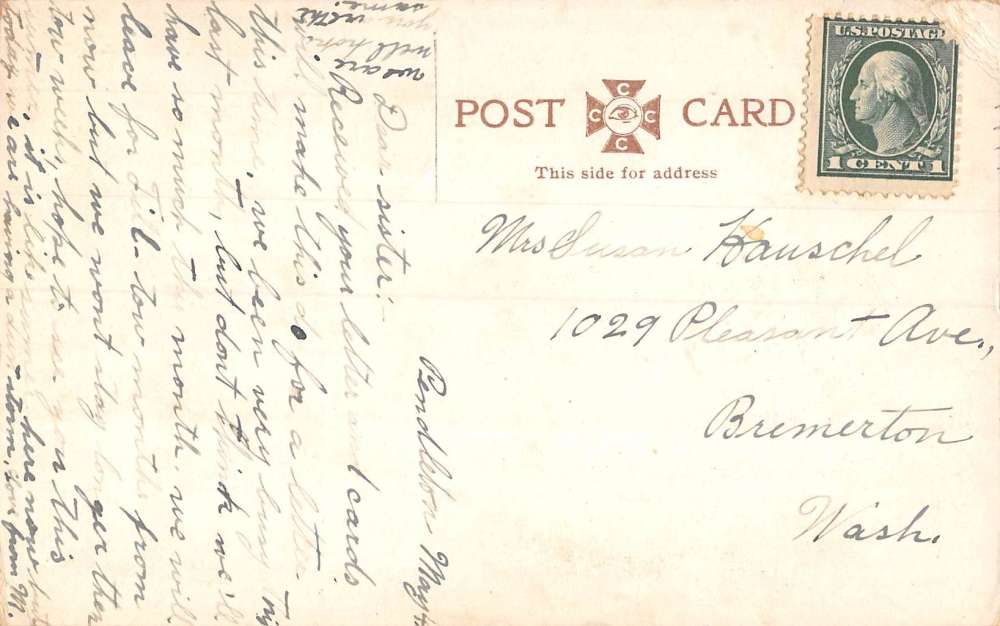 POST CARD
C C C C
This side for address
U.S. POSTAGE
1 CENT 1
Mrs Susan Hauschel
1029 Pleasant Ave.,
Bremerton
Wash.
Pendleton May 4.
Dear sister:-
Received your letter and cards
will make this do for a letter
this time, we been very busy
last month, but dont think we'll
have so much this month. we will
leave for Til. tow months from
now but we wont stay longer then
tow weeks, hope to see you this
it is like here now but
today we are having a storm, from M.
we are
well hope
you
same.